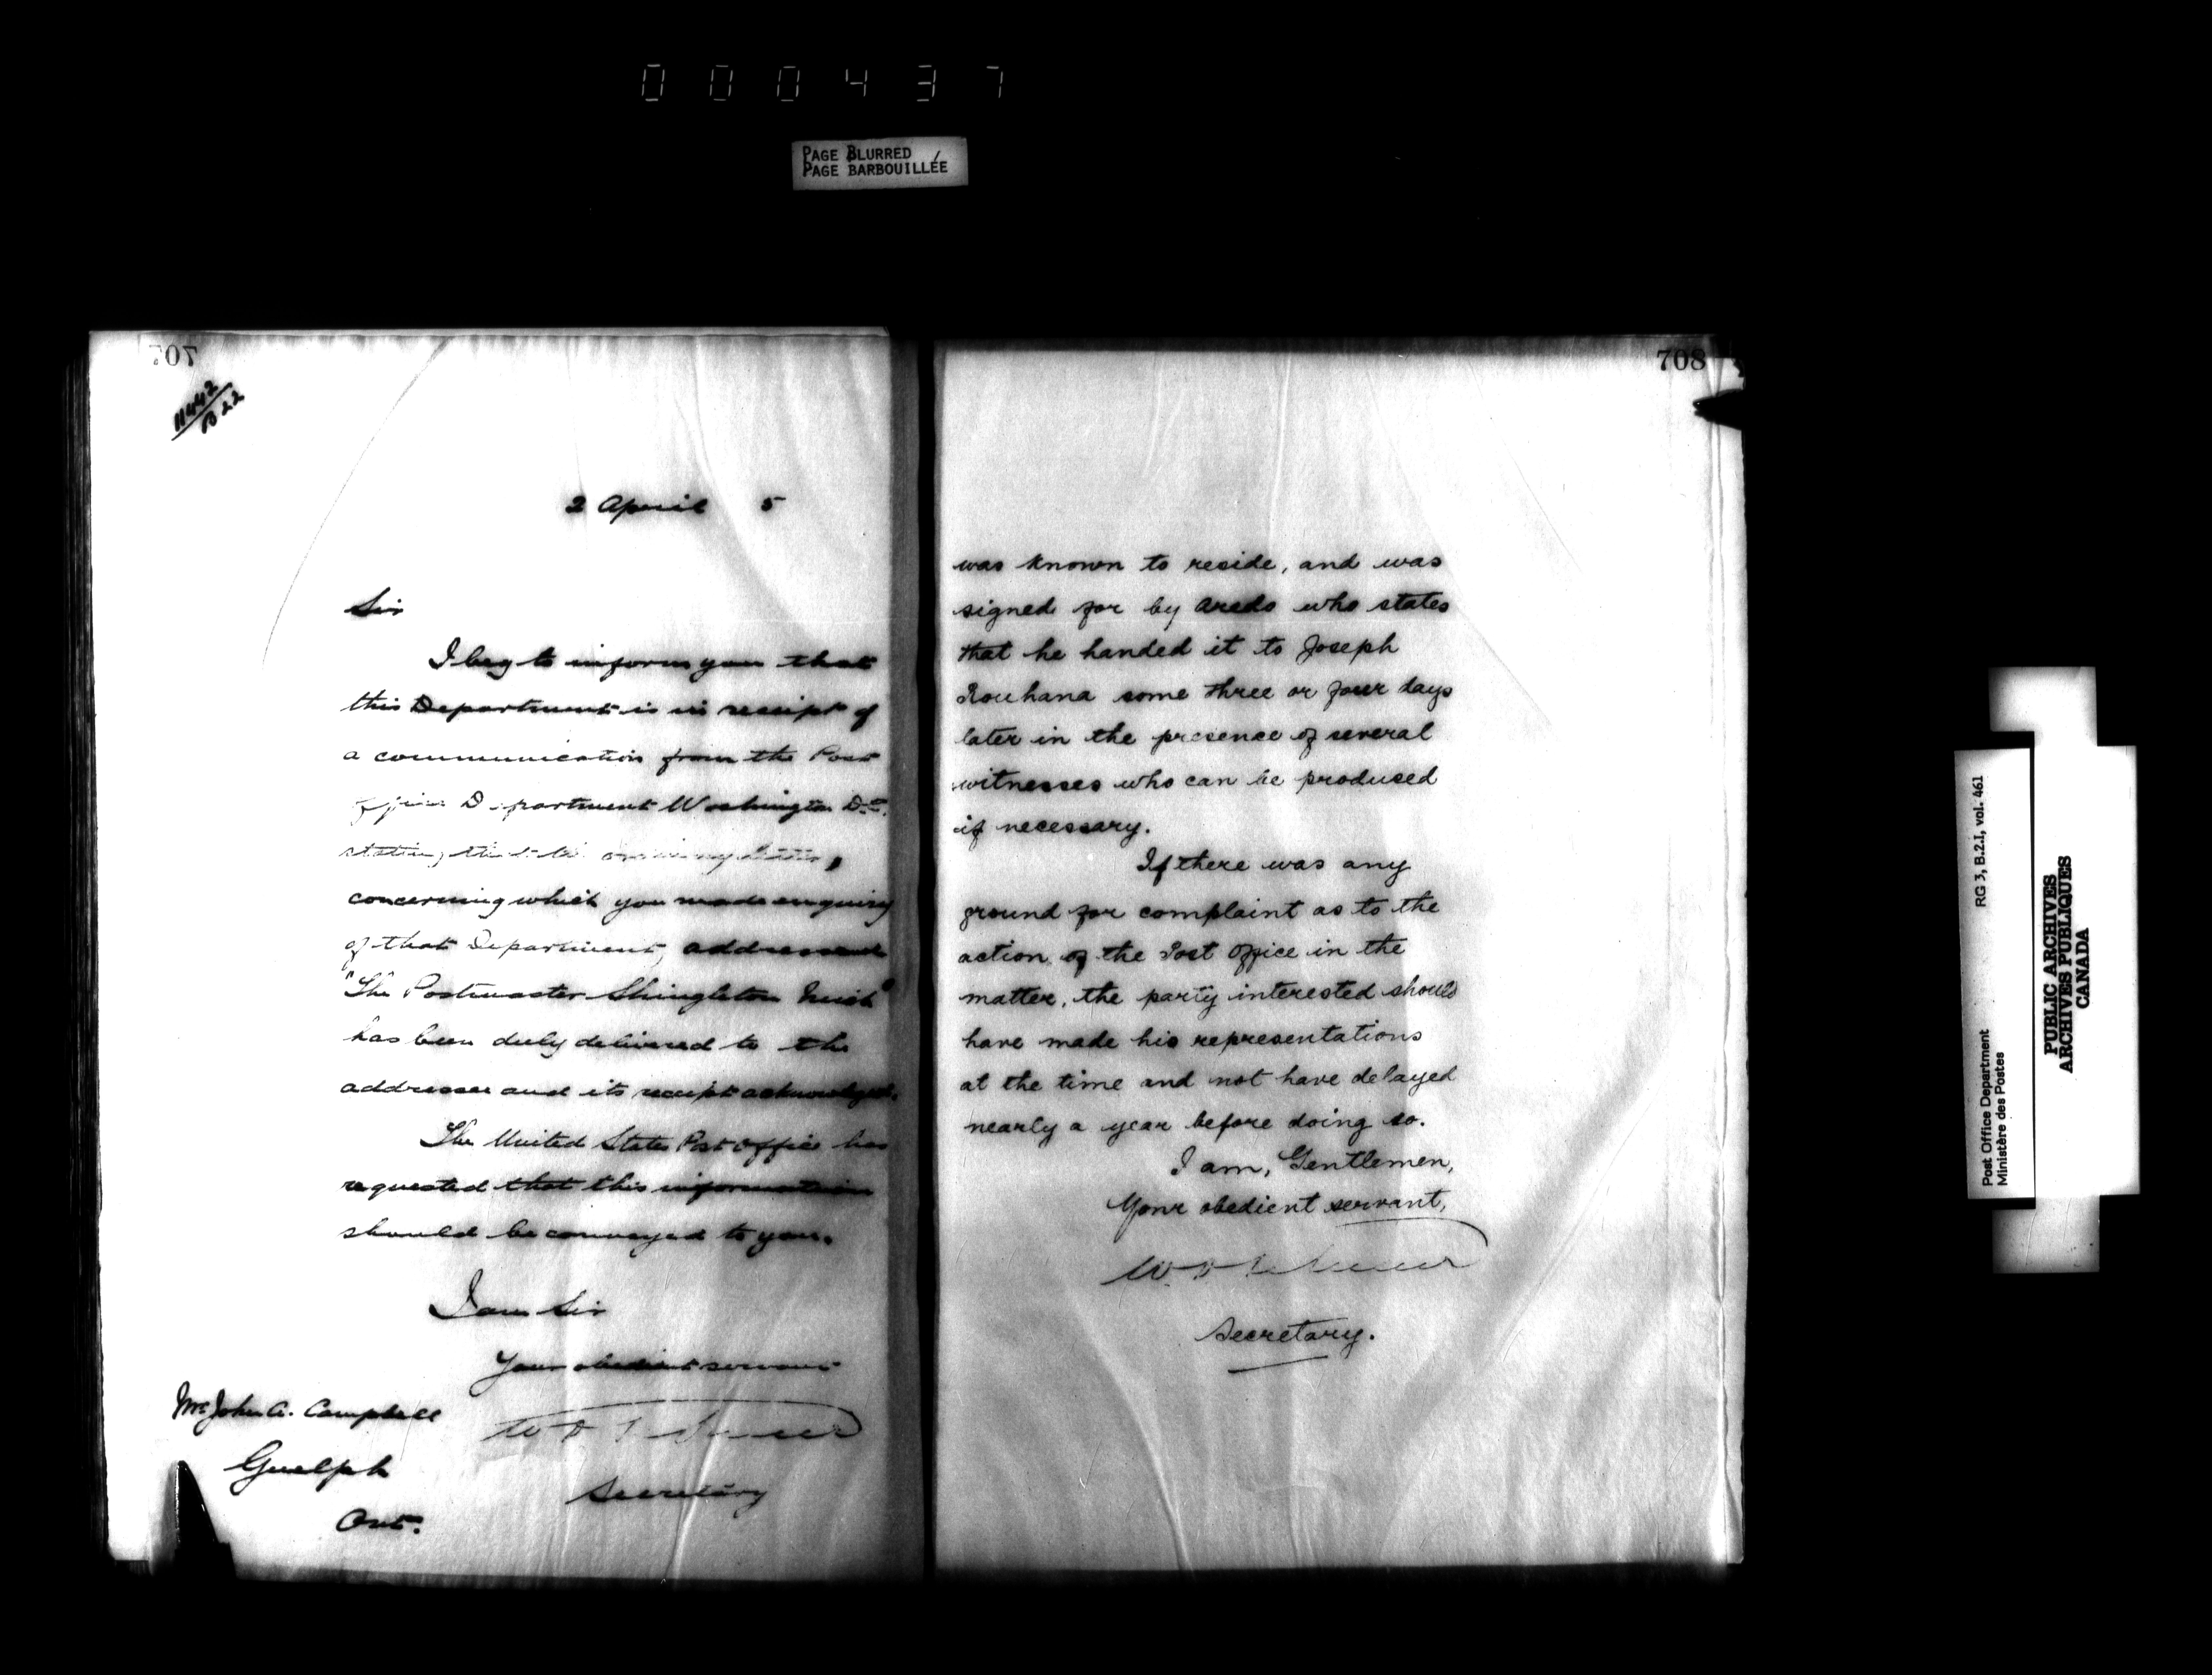 000437
PAGE BLURRED
PAGE BARBOUILLÉE
707
11442
B 22
2 April 5
Sir
I beg to inform you that
this Department is in receipt of
a communication from the Post
Office Department Washington D.C.
stating that
concerning which you made enquiry
of that Department, addressed
"The Postmaster Shingleton Mich"
has been duly delivered to the
addressee and its receipt acknowledged.
The United States Post Office has
requested that this information
should be conveyed to you.
I am Sir
Your obedient servant
W
Secretary
Mr John A. Campbell
Guelph
Ont.
708
was known to reside, and was
signed for by Aredo who states
that he handed it to Joseph
Rouhana some three or four days
later in the presence of several
witnesses who can be produced
if necessary.
If there was any
ground for complaint as to the
action of the Post Office in the
matter, the party interested should
have made his representations
at the time and not have delayed
nearly a year before doing so.
I am, Gentlemen,
Your obedient servant,
W
Secretary.
Post Office Department
Ministère des Postes
RG 3, B.2.I, vol. 461
PUBLIC ARCHIVES
ARCHIVES PUBLIQUES
CANADA